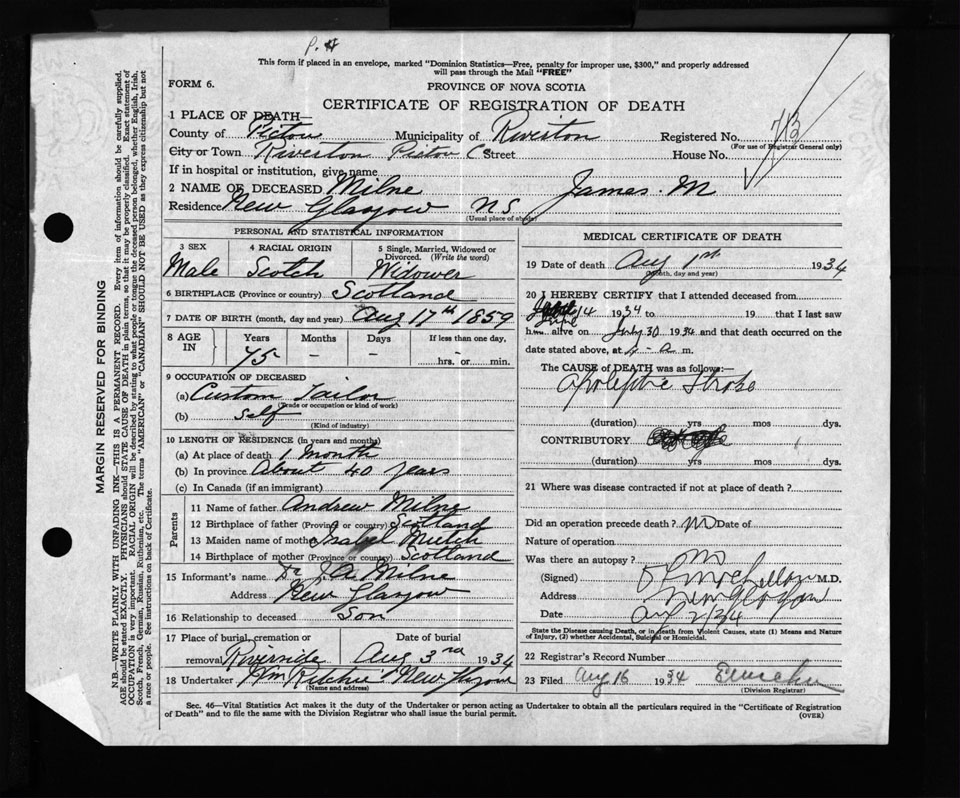 This form if placed in an envelope, marked "Dominion Statistics—Free, penalty for improper use, $300," and properly addressed
will pass through the Mail "FREE"
FORM 6.
PROVINCE OF NOVA SCOTIA
CERTIFICATE OF REGISTRATION OF DEATH
1 PLACE OF DEATH—
County of Pictou Municipality of Riverton Registered No. 713
(For use of Registrar General only)
City or Town Riverton Pictou C Street House No.
If in hospital or institution, give name
2 NAME OF DECEASED Milne James. M
Residence New Glasgow NS
(Usual place of abode)
PERSONAL AND STATISTICAL INFORMATION
3 SEX 4 RACIAL ORIGIN 5 Single, Married, Widowed or
Divorced. (Write the word)
Male Scotch Widower
6 BIRTHPLACE (Province or country) Scotland
7 DATE OF BIRTH (month, day and year) Aug 17th 1859
8 AGE IN Years Months Days If less than one day,
75 - - hrs. or min.
9 OCCUPATION OF DECEASED
(a) Custom Tailor
(Trade or occupation or kind of work)
(b) Self
(Kind of industry)
10 LENGTH OF RESIDENCE (in years and months)
(a) At place of death 1 month
(b) In province About 40 years
(c) In Canada (if an immigrant)
Parents
11 Name of father Andrew Milne
12 Birthplace of father (Province or country) Scotland
13 Maiden name of mother Isabel Mutch
14 Birthplace of mother (Province or country) Scotland
15 Informant's name Dr J.A. Milne
Address New Glasgow
16 Relationship to deceased Son
17 Place of burial, cremation or Date of burial
removal Riverside Aug 3rd 1934
18 Undertaker Wm Ritchie New Glasgow
(Name and address)
MEDICAL CERTIFICATE OF DEATH
19 Date of death Aug 1st 1934
(Month, day and year)
20 I HEREBY CERTIFY that I attended deceased from
14 1934 to 19 that I last saw
h alive on July 30 1934 and that death occurred on
date stated above, at 4 - a m.
The CAUSE of DEATH was as follows:—
Stroke
(duration) yrs mos dys.
CONTRIBUTORY
(duration) yrs mos dys.
21 Where was disease contracted if not at place of death?
Did an operation precede death? no Date of
Nature of operation
Was there an autopsy? no
(Signed) M.D.
Address New Glasgow
Date Aug 2/34
State the Disease causing Death, or in death from Violent Causes, state (1) Means and Nature
of Injury, (2) whether Accidental, Suicidal or Homicidal.
22 Registrar's Record Number
23 Filed Aug 16 1934
(Division Registrar)
Sec. 46—Vital Statistics Act makes it the duty of the Undertaker or person acting as Undertaker to obtain all the particulars required in the "Certificate of Registration
of Death" and to file the same with the Division Registrar who shall issue the burial permit. (OVER)
MARGIN RESERVED FOR BINDING
N.B.—WRITE PLAINLY WITH UNFADING INK—THIS IS A PERMANENT RECORD. Every item of information should be carefully supplied.
AGE should be stated EXACTLY. PHYSICIANS should STATE CAUSE OF DEATH in plain terms, so that it may be properly classified. Exact statement of
OCCUPATION is very important. RACIAL ORIGIN will be described by stating to what people or tongue the deceased person belonged, whether English, Irish,
Scotch, French, German, Russian, Ruthenian, etc. The terms "AMERICAN" or "CANADIAN" SHOULD NOT BE USED as they express citizenship but not
a race or people. See instructions on back of Certificate.